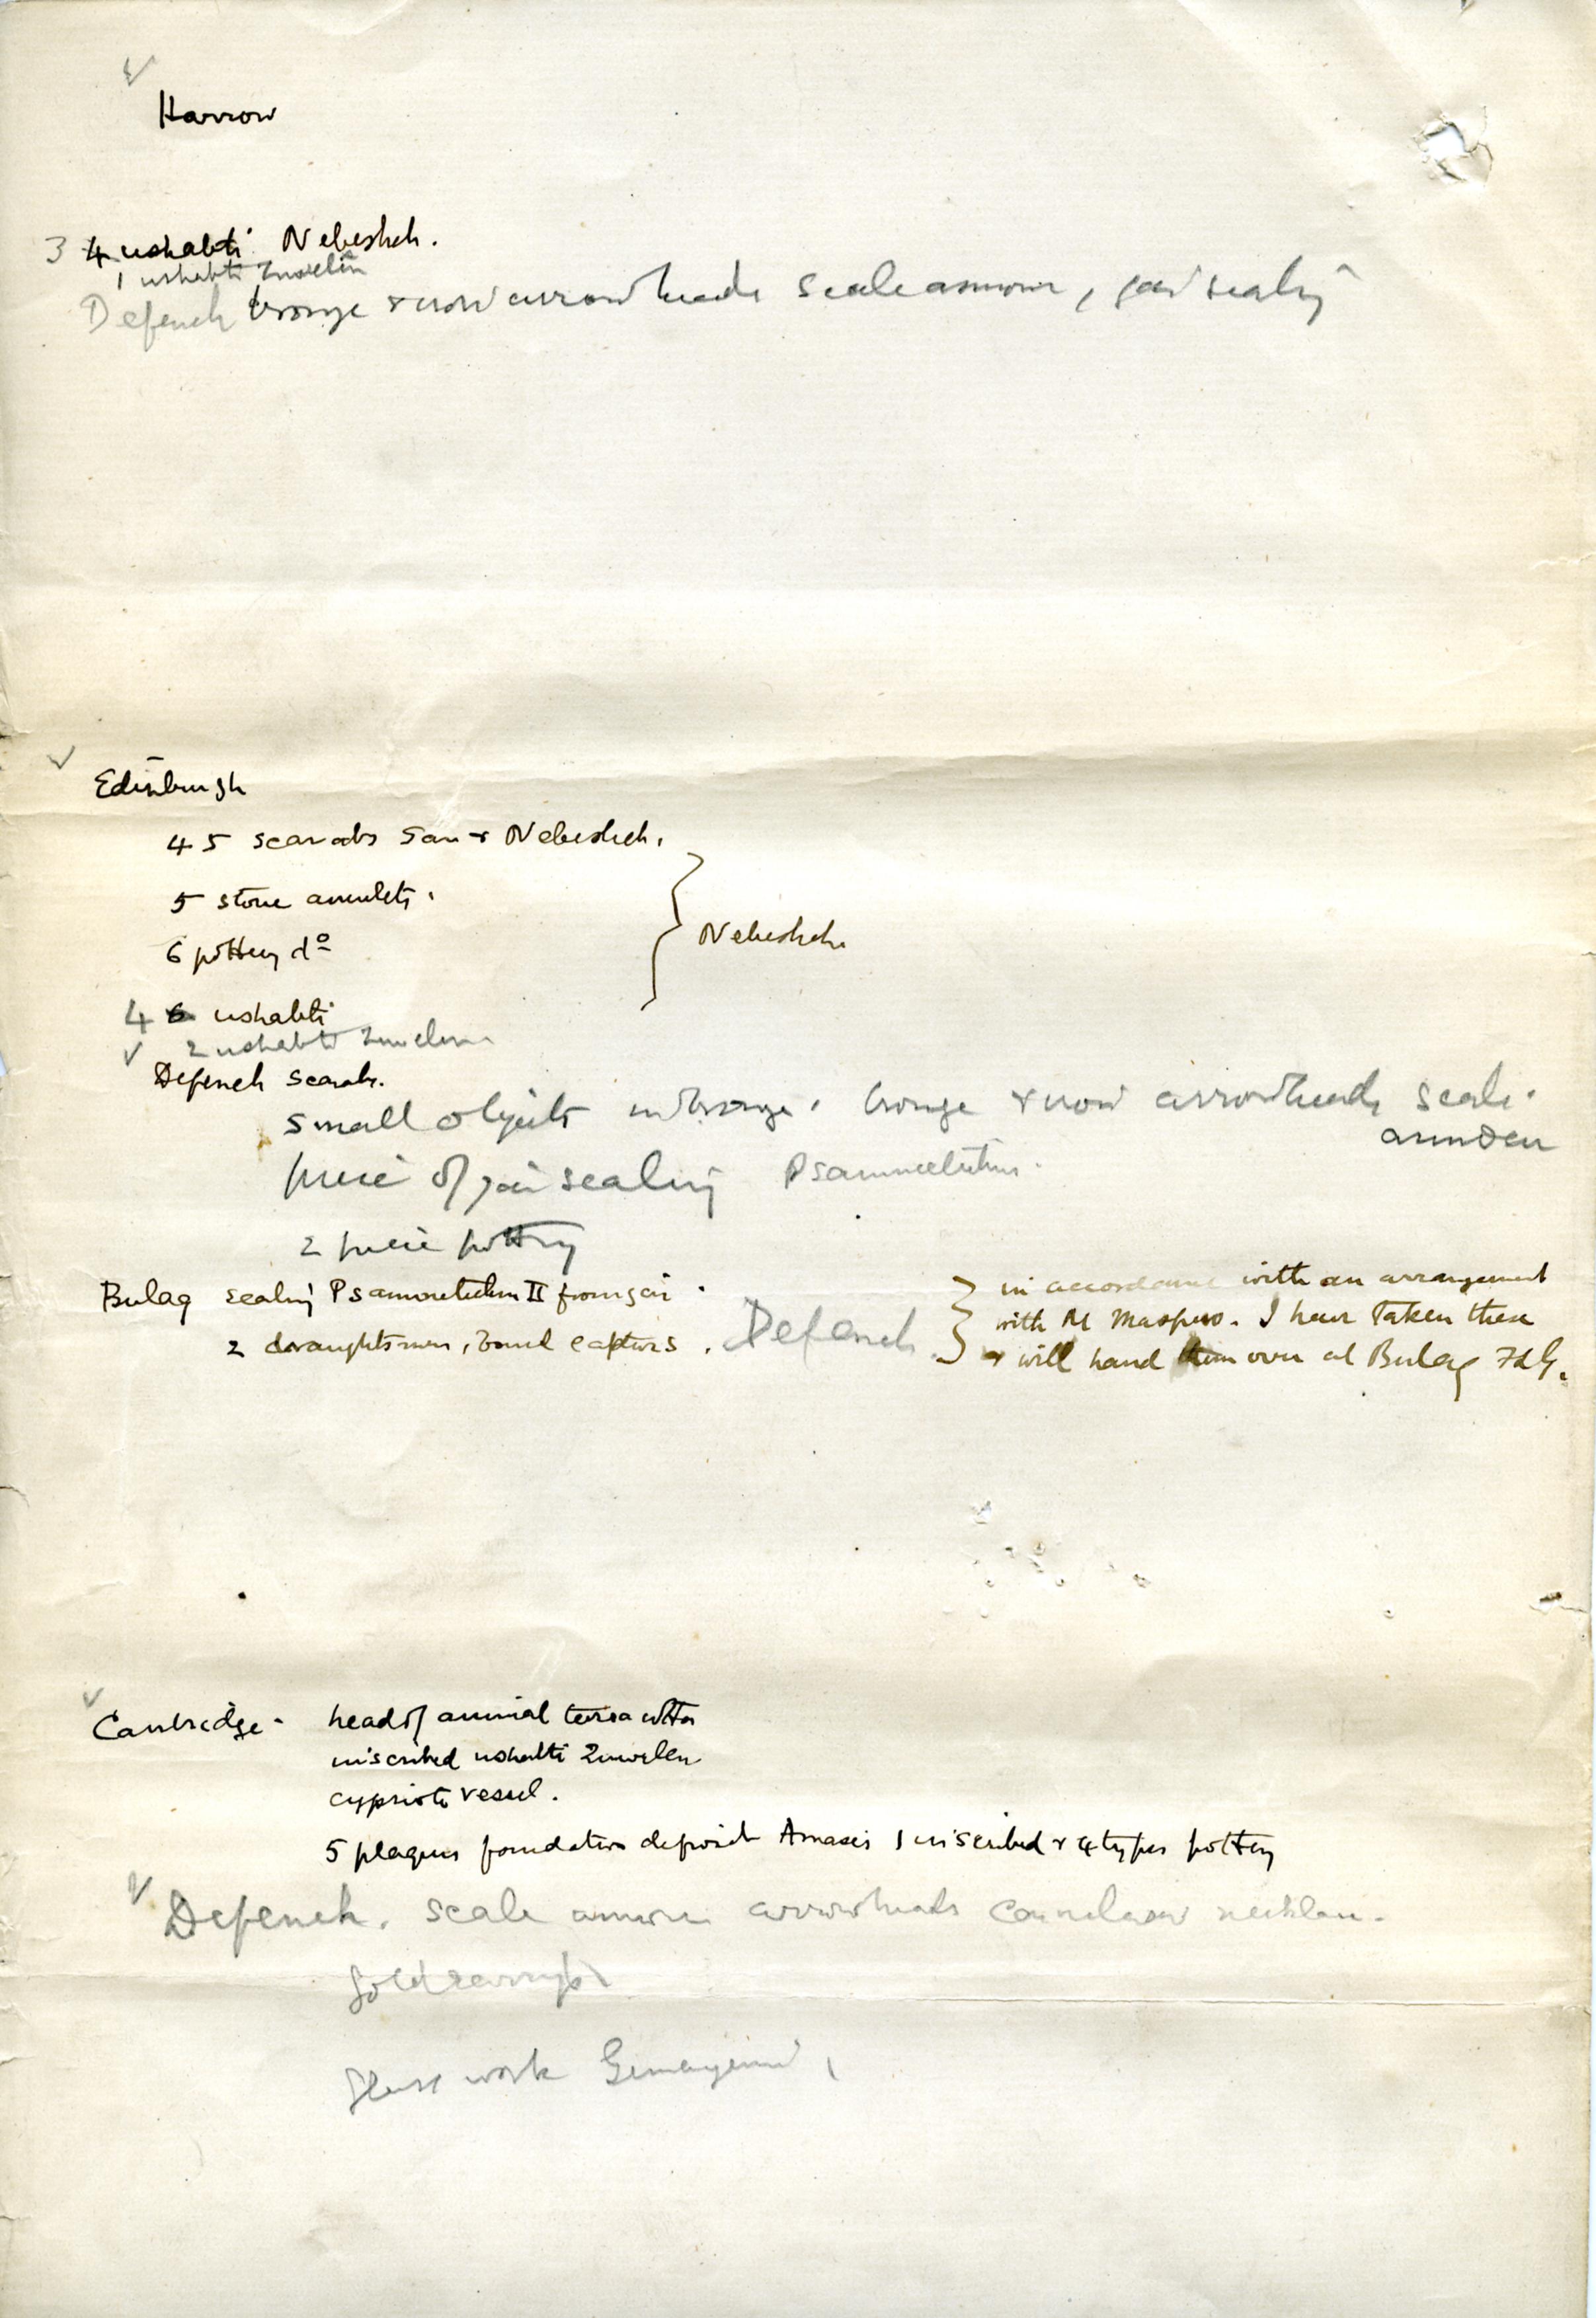 Harrow
3 4 ushabti Nebesheh.
1 ushabti Zuwelin
Defeneh bronze & iron arrowheads scale armour, jar sealing
Edinburgh
45 scarabs San & Nebesheh.
5 stone amulets.
6 pottery do
Nebesheh.
4 6 ushabti
2 ushabti Zuwelen
Defeneh scarabs.
small objects in bronze. bronze & iron arrowheads scale
armour
piece of jar sealing Psammetichus.
2 piece pottery
Bulaq sealing Psammetichus II from jar.
2 draughtsmen, bound captives. Defeneh.
in accordance with an arrangement
with M Maspero. I have taken these
& will hand them over at Bulaq FLG.
Cambridge - head of animal terra cotta
inscribed ushabti Zuwelen
cypriote vessel.
5 plaques foundation deposit Amasis 1 inscribed & 4 types pottery
Defeneh. scale armour arrowheads carnelian necklace.
Gold
Glass work Gemayemi,